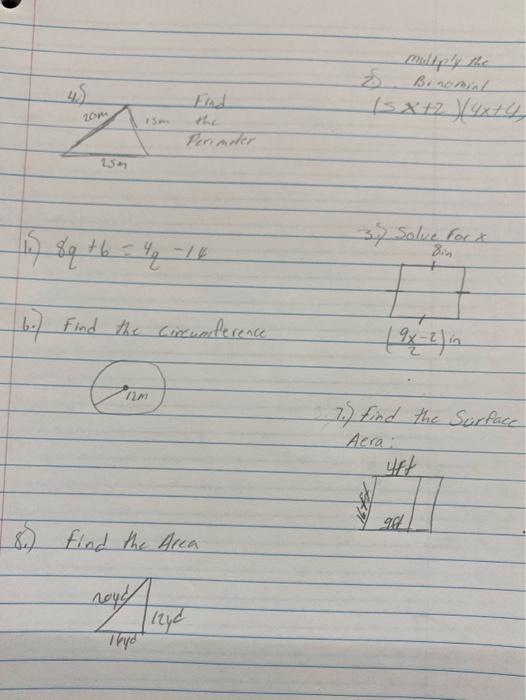 multiply the
2.) Binomial
(5x+2)(4x+4)
4.)
20m
15m
Find
the
Perimeter
25m
1.) 8q + 6 = 4q - 14
3.) Solve For x
8in
(9x/2 - 2) in
6.) Find the Circumference
12m
7.) find the Surface
Aera:
4ft
9ft
8.) find the Area
20yd
12yd
16yd